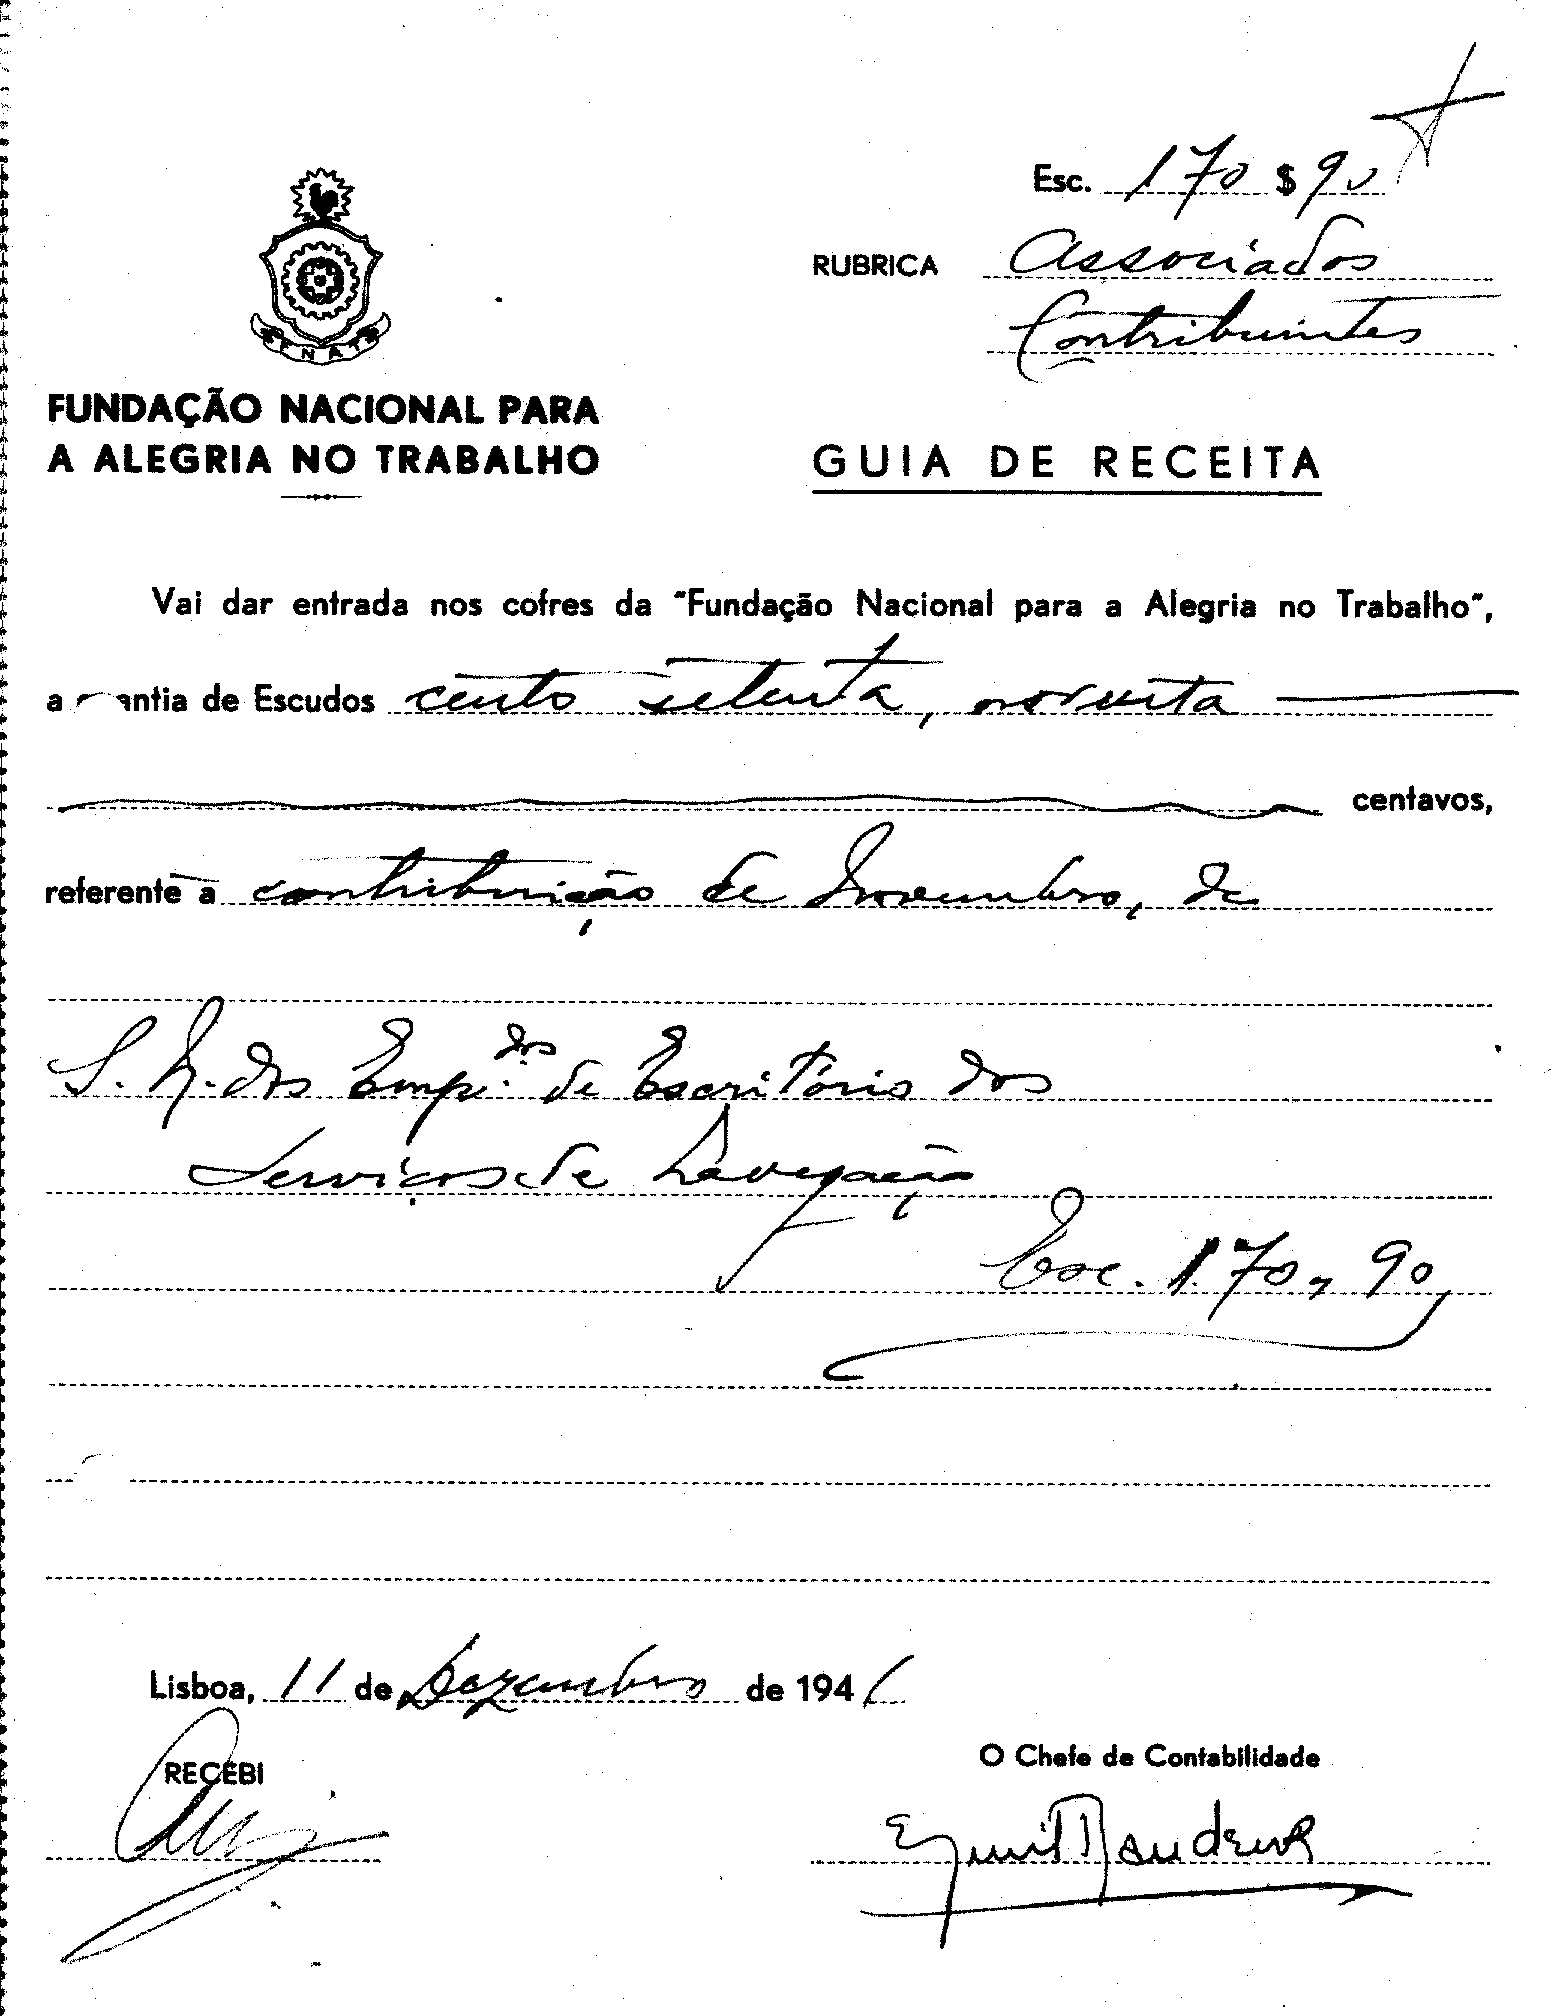 Esc. 170 $ 90
RUBRICA Associados
Contribuintes
FNAT
FUNDAÇÃO NACIONAL PARA
A ALEGRIA NO TRABALHO
GUIA DE RECEITA
Vai dar entrada nos cofres da "Fundação Nacional para a Alegria no Trabalho",
a antia de Escudos cento setenta, noventa
centavos,
referente a contribuição de Novembro, de
S. N. dos Emp.dos de Escritório dos
Serviços de Navegação
Esc. 170,90
Lisboa, 11 de Dezembro de 1941
RECEBI
O Chefe de Contabilidade